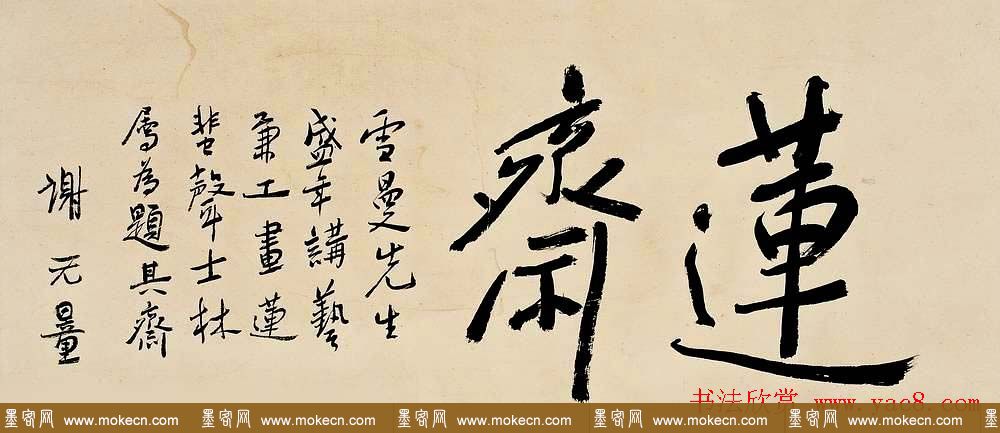 蓮齋
雪曼先生
盛年講藝
兼工畫蓮
蜚聲士林
屬為題其齋
謝无量
书法欣赏 www.yac8.com
墨客网 www.mokecn.com 墨客网 www.mokecn.com 墨客网 www.mokecn.com 墨客网 www.mokecn.com 墨客网 www.mokecn.com